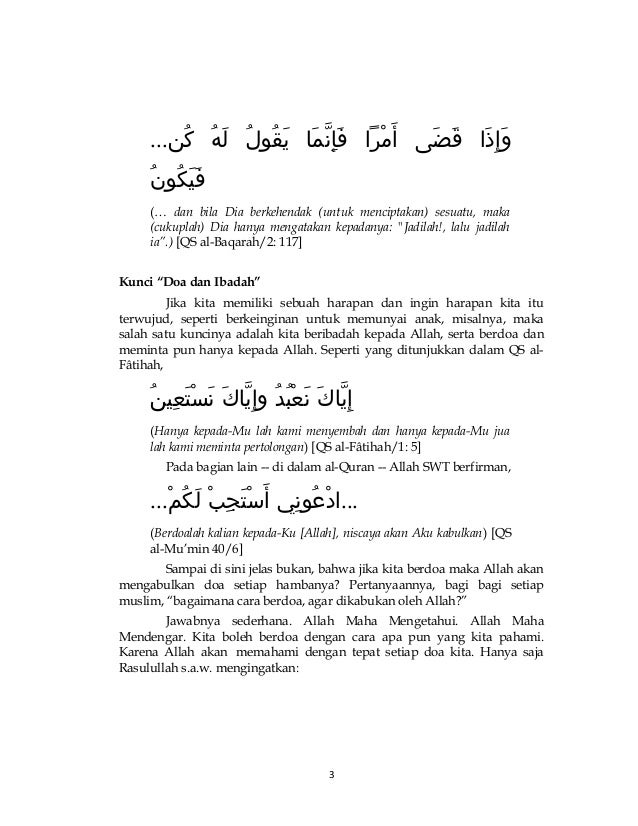 وَإِذَا قَضَى أَمْرًا فَإِنَّمَا يَقُولُ لَهُ كُن...
فَيَكُونُ
(… dan bila Dia berkehendak (untuk menciptakan) sesuatu, maka
(cukuplah) Dia hanya mengatakan kepadanya: "Jadilah!, lalu jadilah
ia”.) [QS al-Baqarah/2: 117]
Kunci “Doa dan Ibadah”
Jika kita memiliki sebuah harapan dan ingin harapan kita itu
terwujud, seperti berkeinginan untuk memunyai anak, misalnya, maka
salah satu kuncinya adalah kita beribadah kepada Allah, serta berdoa dan
meminta pun hanya kepada Allah. Seperti yang ditunjukkan dalam QS al-
Fâtihah,
إِيَّاكَ نَعْبُدُ وإِيَّاكَ نَسْتَعِينُ
(Hanya kepada-Mu lah kami menyembah dan hanya kepada-Mu jua
lah kami meminta pertolongan) [QS al-Fâtihah/1: 5]
Pada bagian lain -- di dalam al-Quran -- Allah SWT berfirman,
...ادْعُونِي أَسْتَجِبْ لَكُمْ...
(Berdoalah kalian kepada-Ku [Allah], niscaya akan Aku kabulkan) [QS
al-Mu’min 40/6]
Sampai di sini jelas bukan, bahwa jika kita berdoa maka Allah akan
mengabulkan doa setiap hambanya? Pertanyaannya, bagi bagi setiap
muslim, “bagaimana cara berdoa, agar dikabukan oleh Allah?”
Jawabnya sederhana. Allah Maha Mengetahui. Allah Maha
Mendengar. Kita boleh berdoa dengan cara apa pun yang kita pahami.
Karena Allah akan memahami dengan tepat setiap doa kita. Hanya saja
Rasulullah s.a.w. mengingatkan:
3